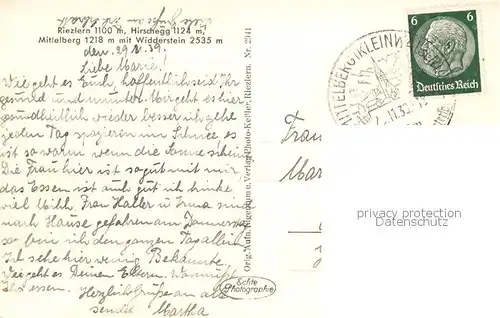 Viele Grüße an
Riezlern 1100 m, Hirschegg 1124 m,
Mittelberg 1218 m mit Widderstein 2535 m
den 29. 39.
Liebe Marie!
Wie geht es Euch, hoffentlich seid Ihr
gesund und munter. Mir geht es hier
gesundheitlich wieder besser ich gehe
jeden Tag spazieren im Schnee, es
ist so warm wenn die Sonne scheint
Die Frau hier ist so gut mit mir
das Essen ist auch gut ich trinke
viel Milch. Frau Haller u Irma sind
nach Hause gefahren am Donnerstag
so bin ich den ganzen Tag allein
Ich sehe hier wenig Bekannte.
Wie geht es Deinen Eltern.
Ihr essen. Herzliche Grüße an alle
sendet Martha
Orig.-Aufn. Eigentum u. Verlag Photo-Keßler, Riezlern. Nr. 2941
Echte
Photographie
MITTELBERG (KLEINW
6 6
Deutsches Reich
Frau
Mar
privacy protection
Datenschutz